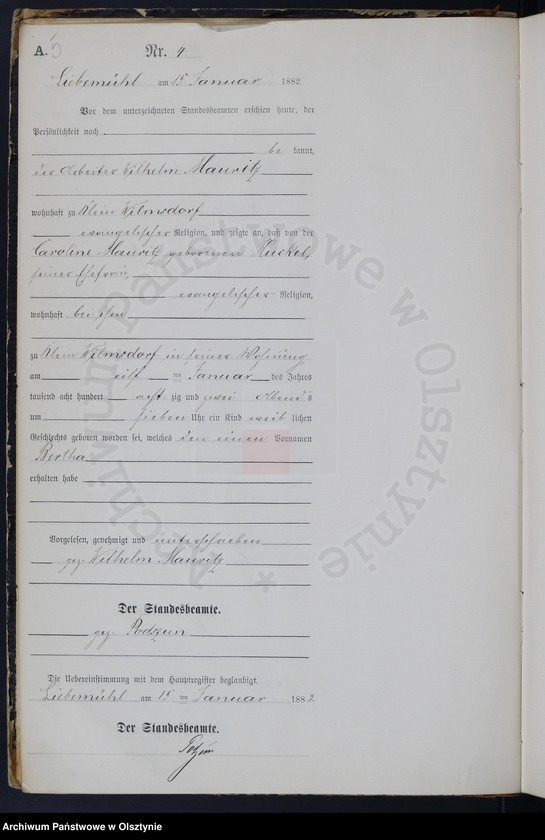 A. 5 Nr. 4
Liebemühl am 15 Januar 1882
Vor dem unterzeichneten Standesbeamten erschien heute, der
Persönlichkeit nach
be kannt,
der Arbeiter Wilhelm Mauritz
wohnhaft zu Klein Wilmsdorf
evangelischer Religion, und zeigte an, daß von der
Caroline Mauritz geborenen Kuckel,
seiner Ehefrau,
evangelischer Religion,
wohnhaft bei ihm
zu Klein Wilmsdorf in seiner Wohnung
am eilf ten Januar des Jahres
tausend acht hundert acht zig und zwei Abends
um sieben Uhr ein Kind weib lichen
Geschlechts geboren worden sei, welches den einen Vornamen
Bertha
erhalten habe
Vorgelesen, genehmigt und unterschrieben
gez. Wilhelm Mauritz
Der Standesbeamte.
gez. Podszun
Die Uebereinstimmung mit dem Hauptregister beglaubigt.
Liebemühl am 15 ten Januar 1882
Der Standesbeamte.
Archiwum Państwowe w Olsztynie
Archiwum Państwowe w Olsztynie